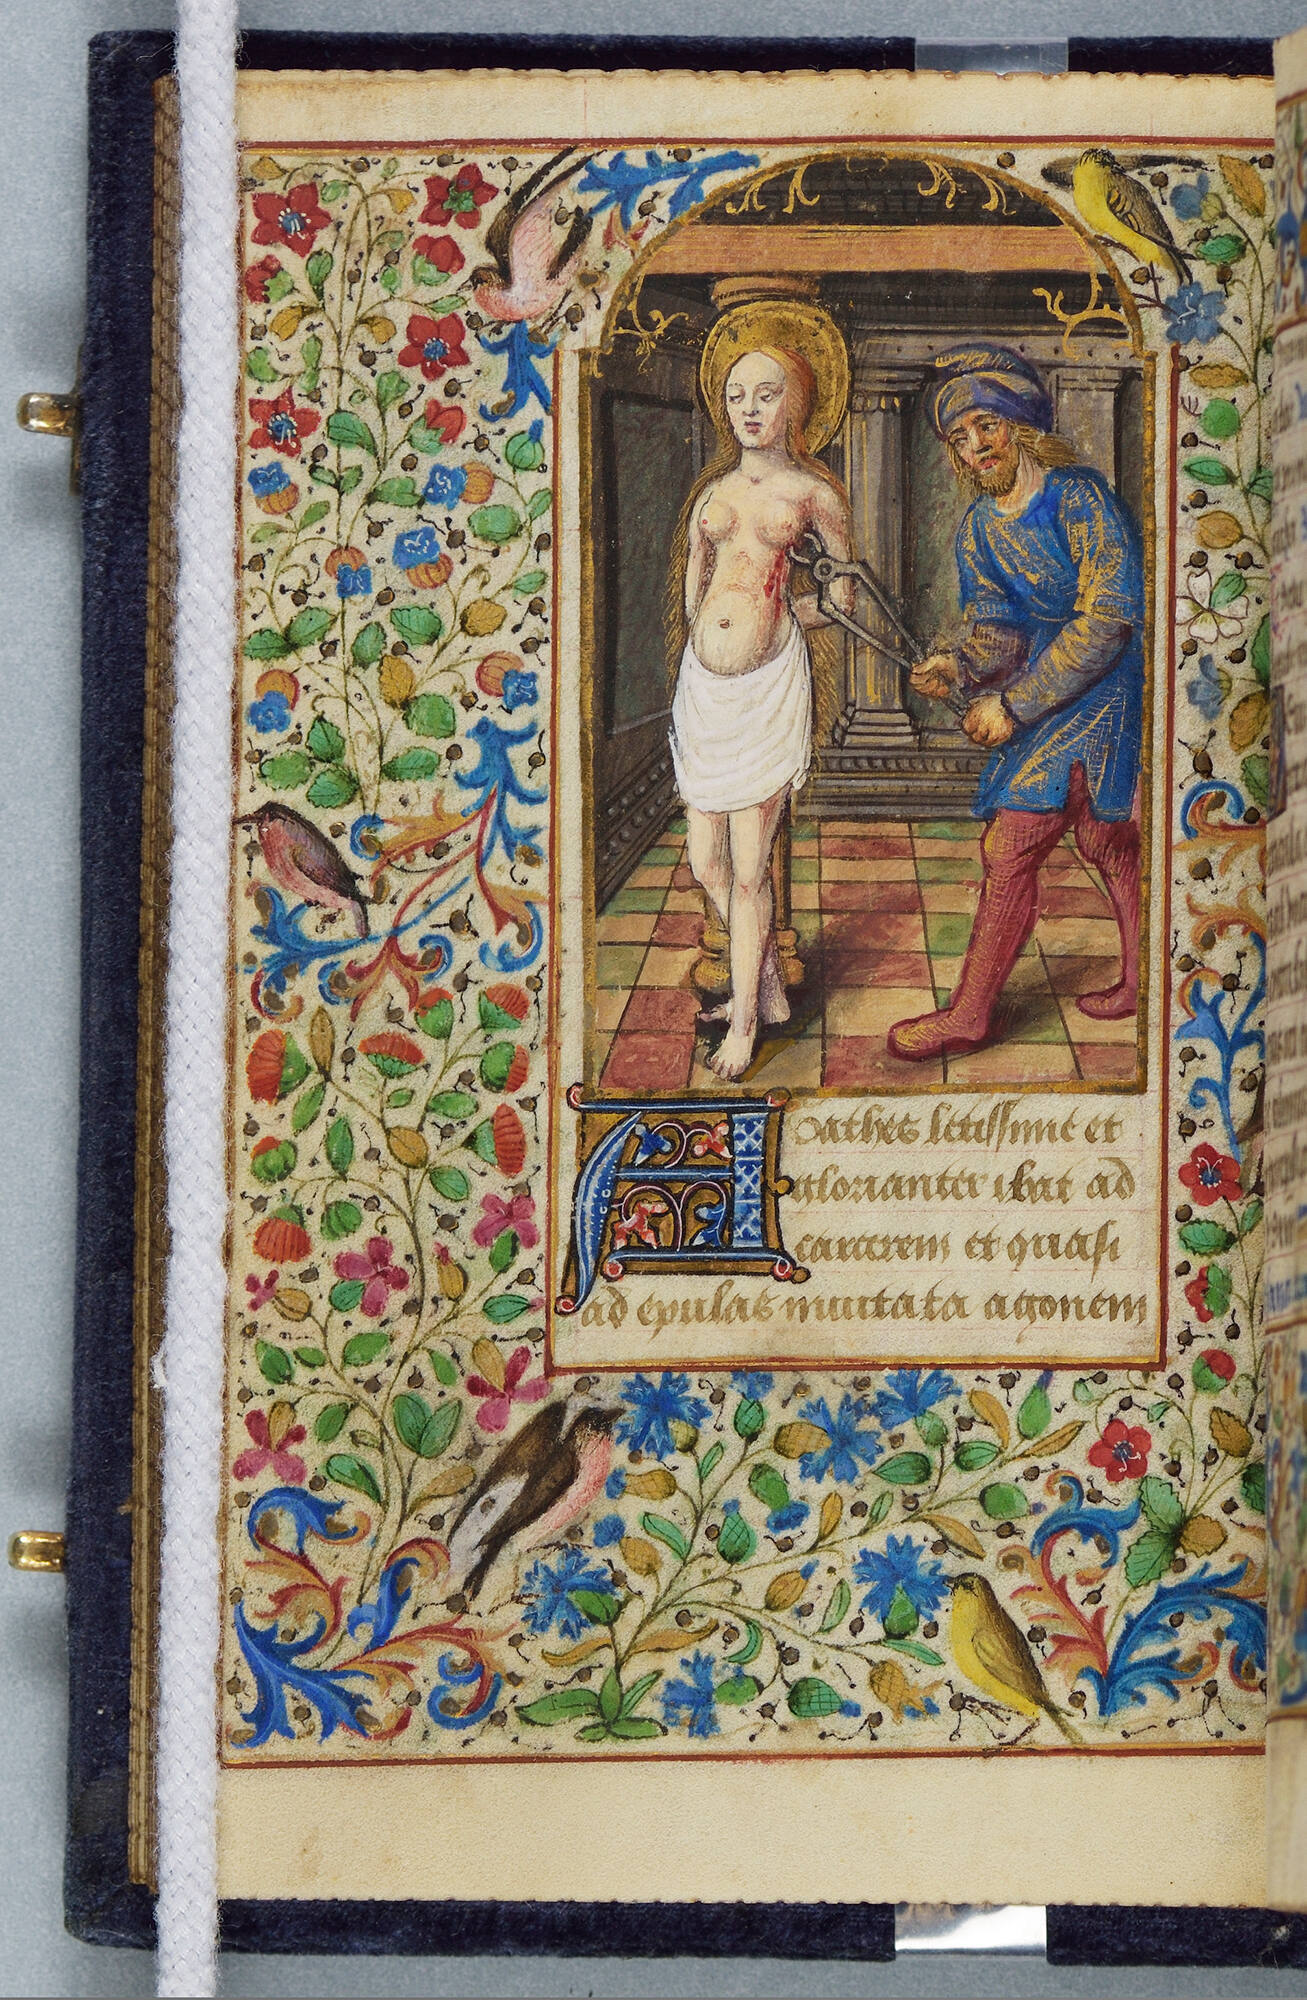 Agathes letissime et
glorianter ibat ad
carcerem et quasi
ad epulas inuitata agonem